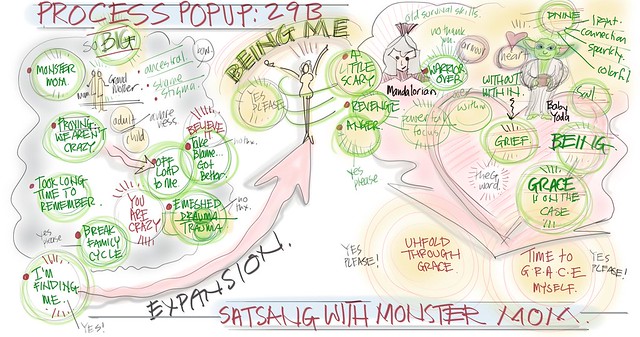 PROCESS POPUP: 29B
SO BIG
MONSTER
MOM
MOM
GRAND
MOTHER
ancestral
stigma
PROVING
WE AREN'T
CRAZY
adult
child
aware
ness
OFF
LOAD
to me.
BELIEVE
Take
Blame...
Got
Better.
TOOK LONG
TIME TO
REMEMBER.
YOU
ARE
CRAZY
ENMESHED
DRAMA
TRAUMA
no
thx.
Yes
please
BREAK
FAMILY
CYCLE
I'M
FINDING
ME.
YES!
EXPANSION.
BEING ME
YES
PLEASE
A
LITTLE
SCARY
REVENGE
ANGER.
yes
please
old survival skills.
no thank
you.
Mandalorian
WARRIOR
OVER
armor
powerful
focus
within
heart
WITHOUT
WITHIN.
DIVINE
light
connection
sparkly.
colorful
Baby
Yoda
GRIEF
BEING
the G
word.
GRACE
IS ON THE
CASE
YES
PLEASE!
UNFOLD
THROUGH
GRACE.
TIME TO
G.R.A.C.E
MYSELF.
YES
PLEASE!
SATSANG WITH MONSTER MOM.